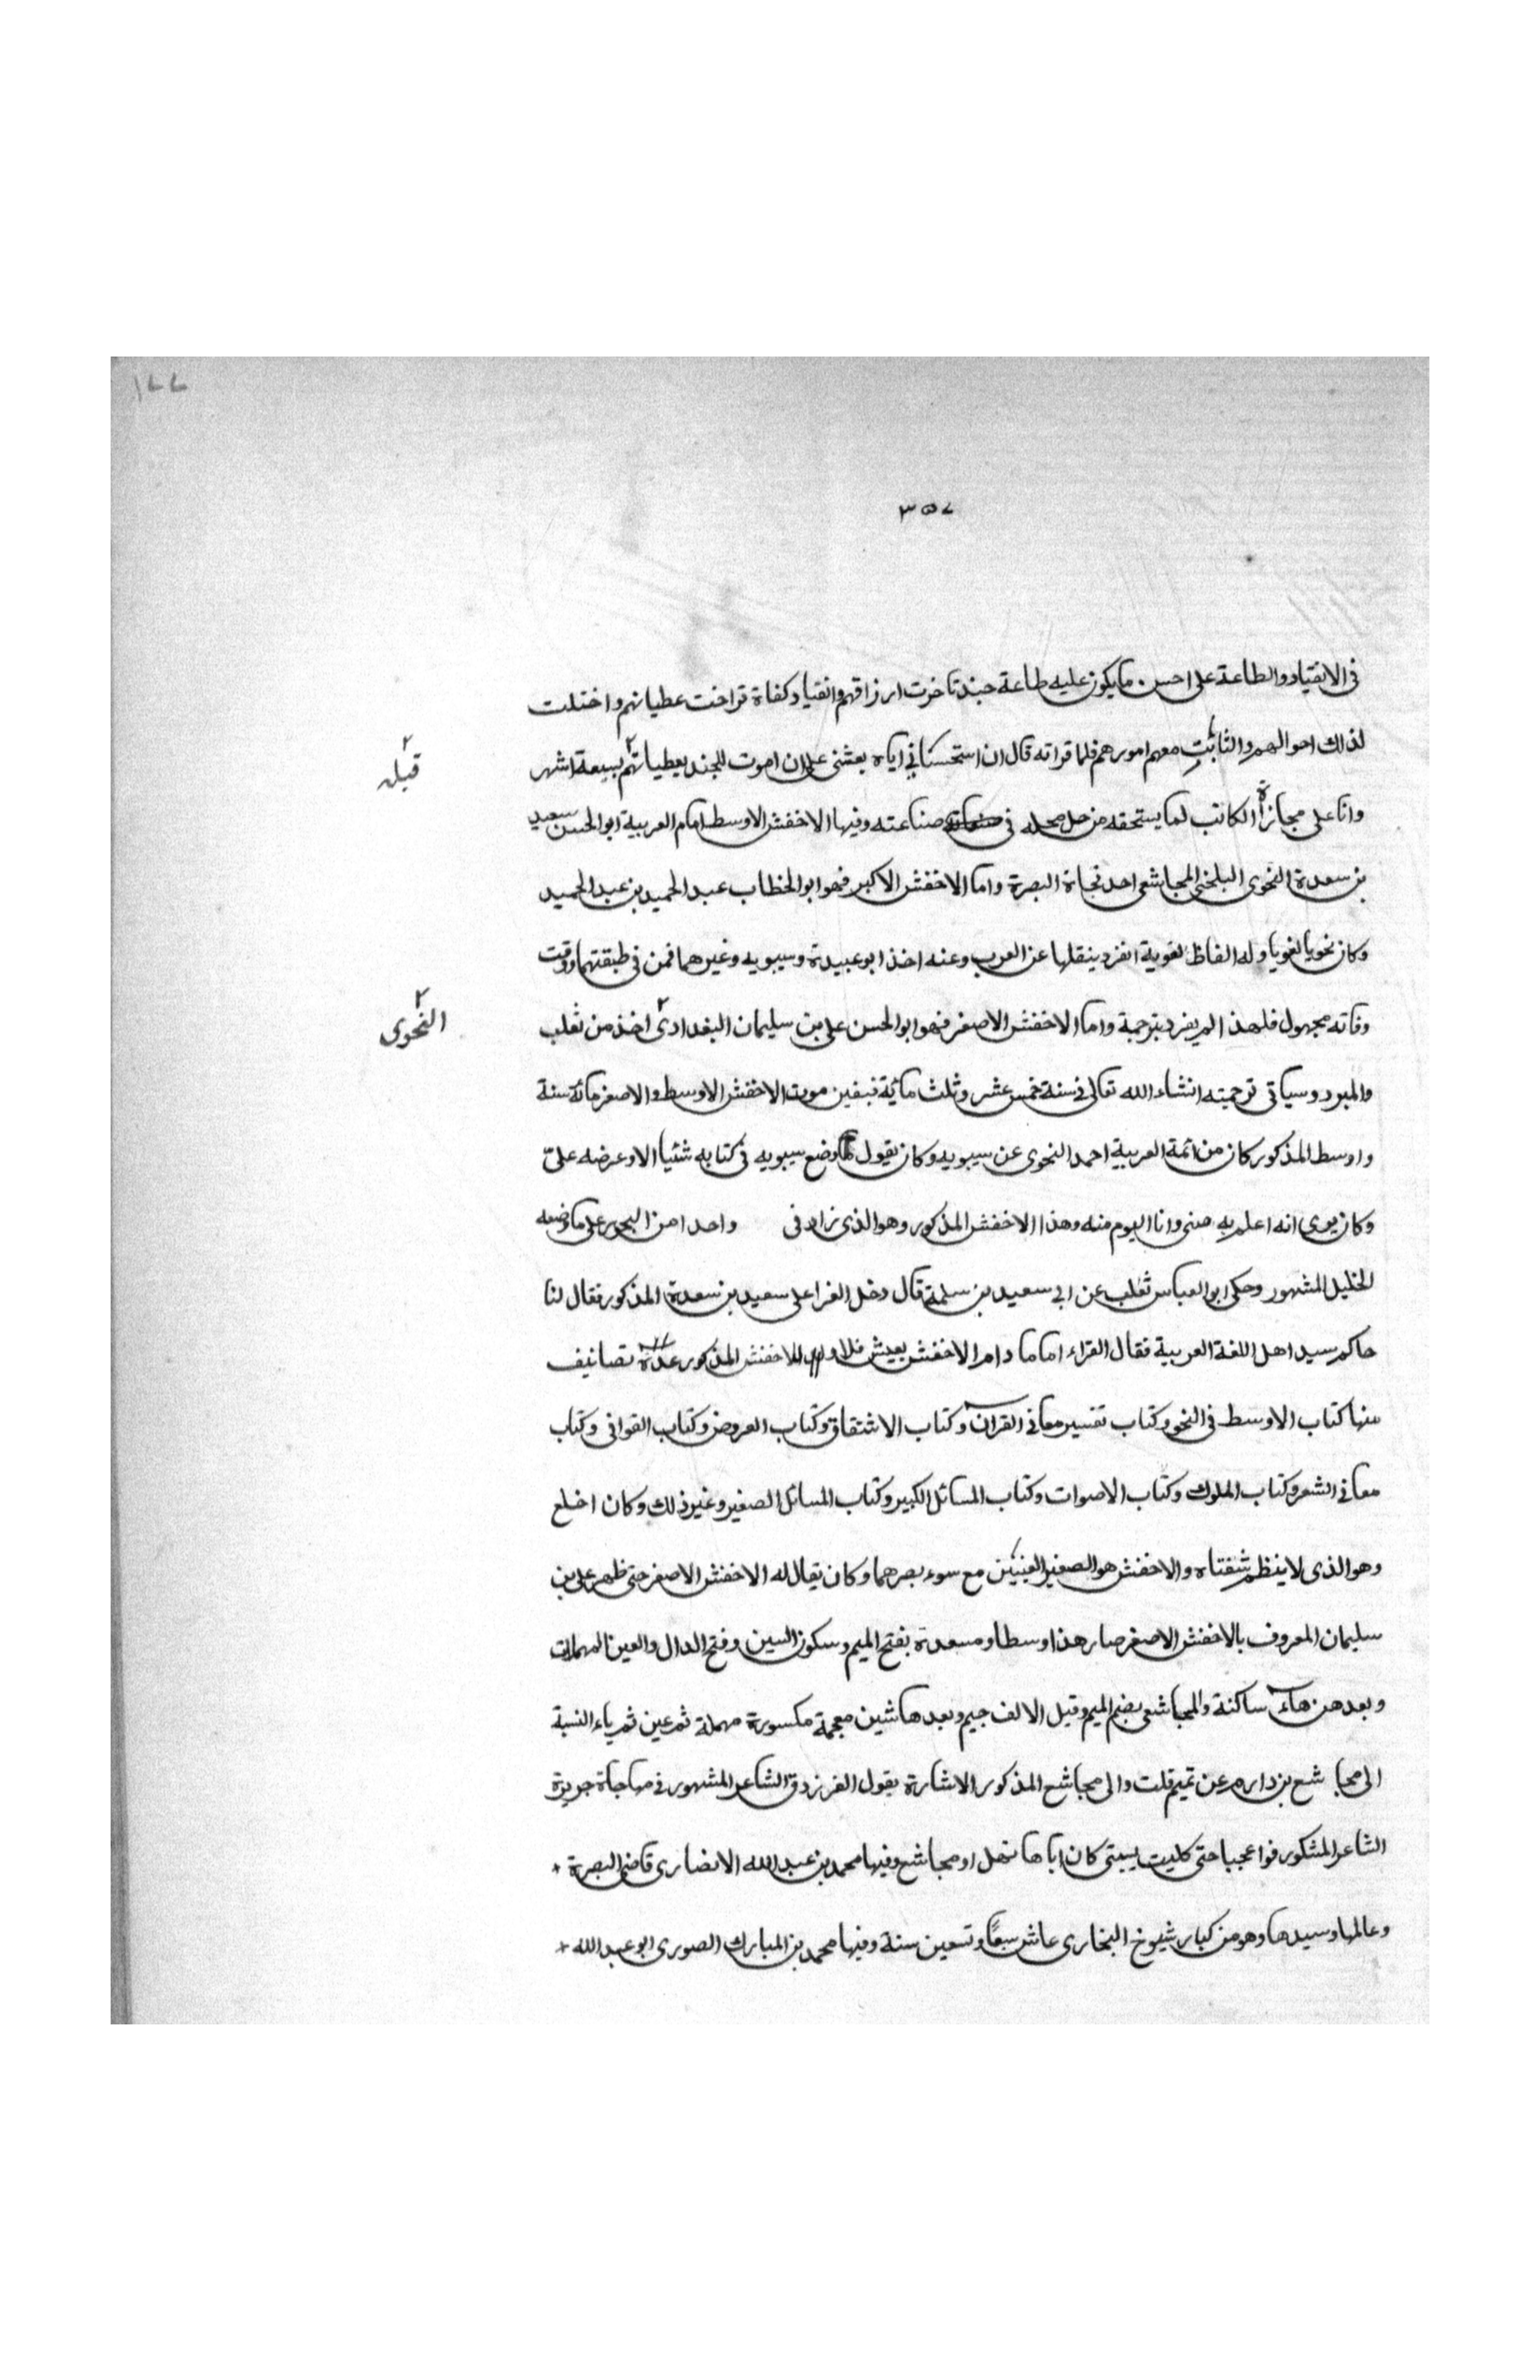 ١٧٧
٣٥٧
فى الانقياد والطاعة على احسن ما يكون عليه طاعة جند تاخرت ارزاقهم وانقياد كفاة تراخت عطياتهم واختلت
لذلك احوالهم والتاثت معهم امورهم فلما قراته قال ان استحسانى اياه بعثنى على ان اموت للجند بعطياتهم بسبعة اشهر
قبله
وانا على مجازاة الكاتب لما يستحقه من حل محله فى صناعته وفيها الاخفش الاوسط امام العربية ابو الحسن سعيد
بن سعدة النحوى البلخى المجاشعى احد نحاة البصرة واما الاخفش الاكبر فهو ابو الخطاب عبد الحميد بن عبد الحميد
وكان نحويا لغويا وله الفاظ لغوية انفرد بنقلها عن العرب وعنه اخذ ابو عبيدة وسيبويه وغيرهما فمن فى طبقتهما ووقت
وفاته مجهول فلهذا لم يفرد بترجمة واما الاخفش الاصغر فهو ابو الحسن على بن سليمان البغدادى اخذ من ثعلب
النحوى
والمبرد وسياتى ترجمته انشاء الله تعالى فى سنة خمس عشر وثلث مائة فبين موت الاخفش الاوسط والاصغر مائة سنة
واوسط المذكور كان من ائمة العربية احمد النحوى عن سيبويه وكان يقول ما وضع سيبويه فى كتابه شئيا الا وعرضه علىّ
وكان يرى انه اعلم به منى وانا اليوم منه وهذا الاخفش المذكور وهو الذى زاد فى واحدا من البحر على ما وضعه
الخليل المشهور وحكى ابو العباس ثعلب عن ابى سعيد بن سلمة قال دخل الفرا على سعيد بن سعدة المذكور فقال لنا
حاكم سيد اهل اللغة العربية فقال الفراء اما ما دام الاخفش يعيش فلا وللاخفش المذكور عدة تصانيف
منها كتاب الاوسط فى النحو وكتاب تفسير معانى القران وكتاب الاشتقاق وكتاب العروض وكتاب القوافى وكتاب
معانى الشعر وكتاب الملوك وكتاب الاصوات وكتاب المسائل الكبير وكتاب المسائل الصغير وغير ذلك وكان اخلع
وهو الذى لا ينظم شفتاه والاخفش هو الصغير العينين مع سوء بصرهما وكان يقال له الاخفش الاصغر حتى ظهر على بن
سليمان المعروف بالاخفش الاصغر صار هذا اوسطا ومسعدة بفتح الميم وسكون السين وفتح الدال والعين المهملات
وبعدهن هاء ساكنة والمجاشعى بضم الميم وقبل الالف جيم وبعدها شين معجمة مكسورة مهملة ثم عين ثم ياء النسبة
الى مجاشع بن دارم عن تميم قلت والى مجاشع المذكور الاشارة بقول الفرزدق الشاعر المشهور فى مهاجاة جريرة
الشاعر المشكور فوا عجبا حتى كليت يسبتى كان اباها نهل او مجاشع وفيها محمد بن عبد الله الانصارى قاضى البصرة
وعالمها وسيدها وهو من كبار شيوخ البخارى عاش سبعًا وتسعين سنة وفيها محمد بن المبارك الصورى ابو عبد الله